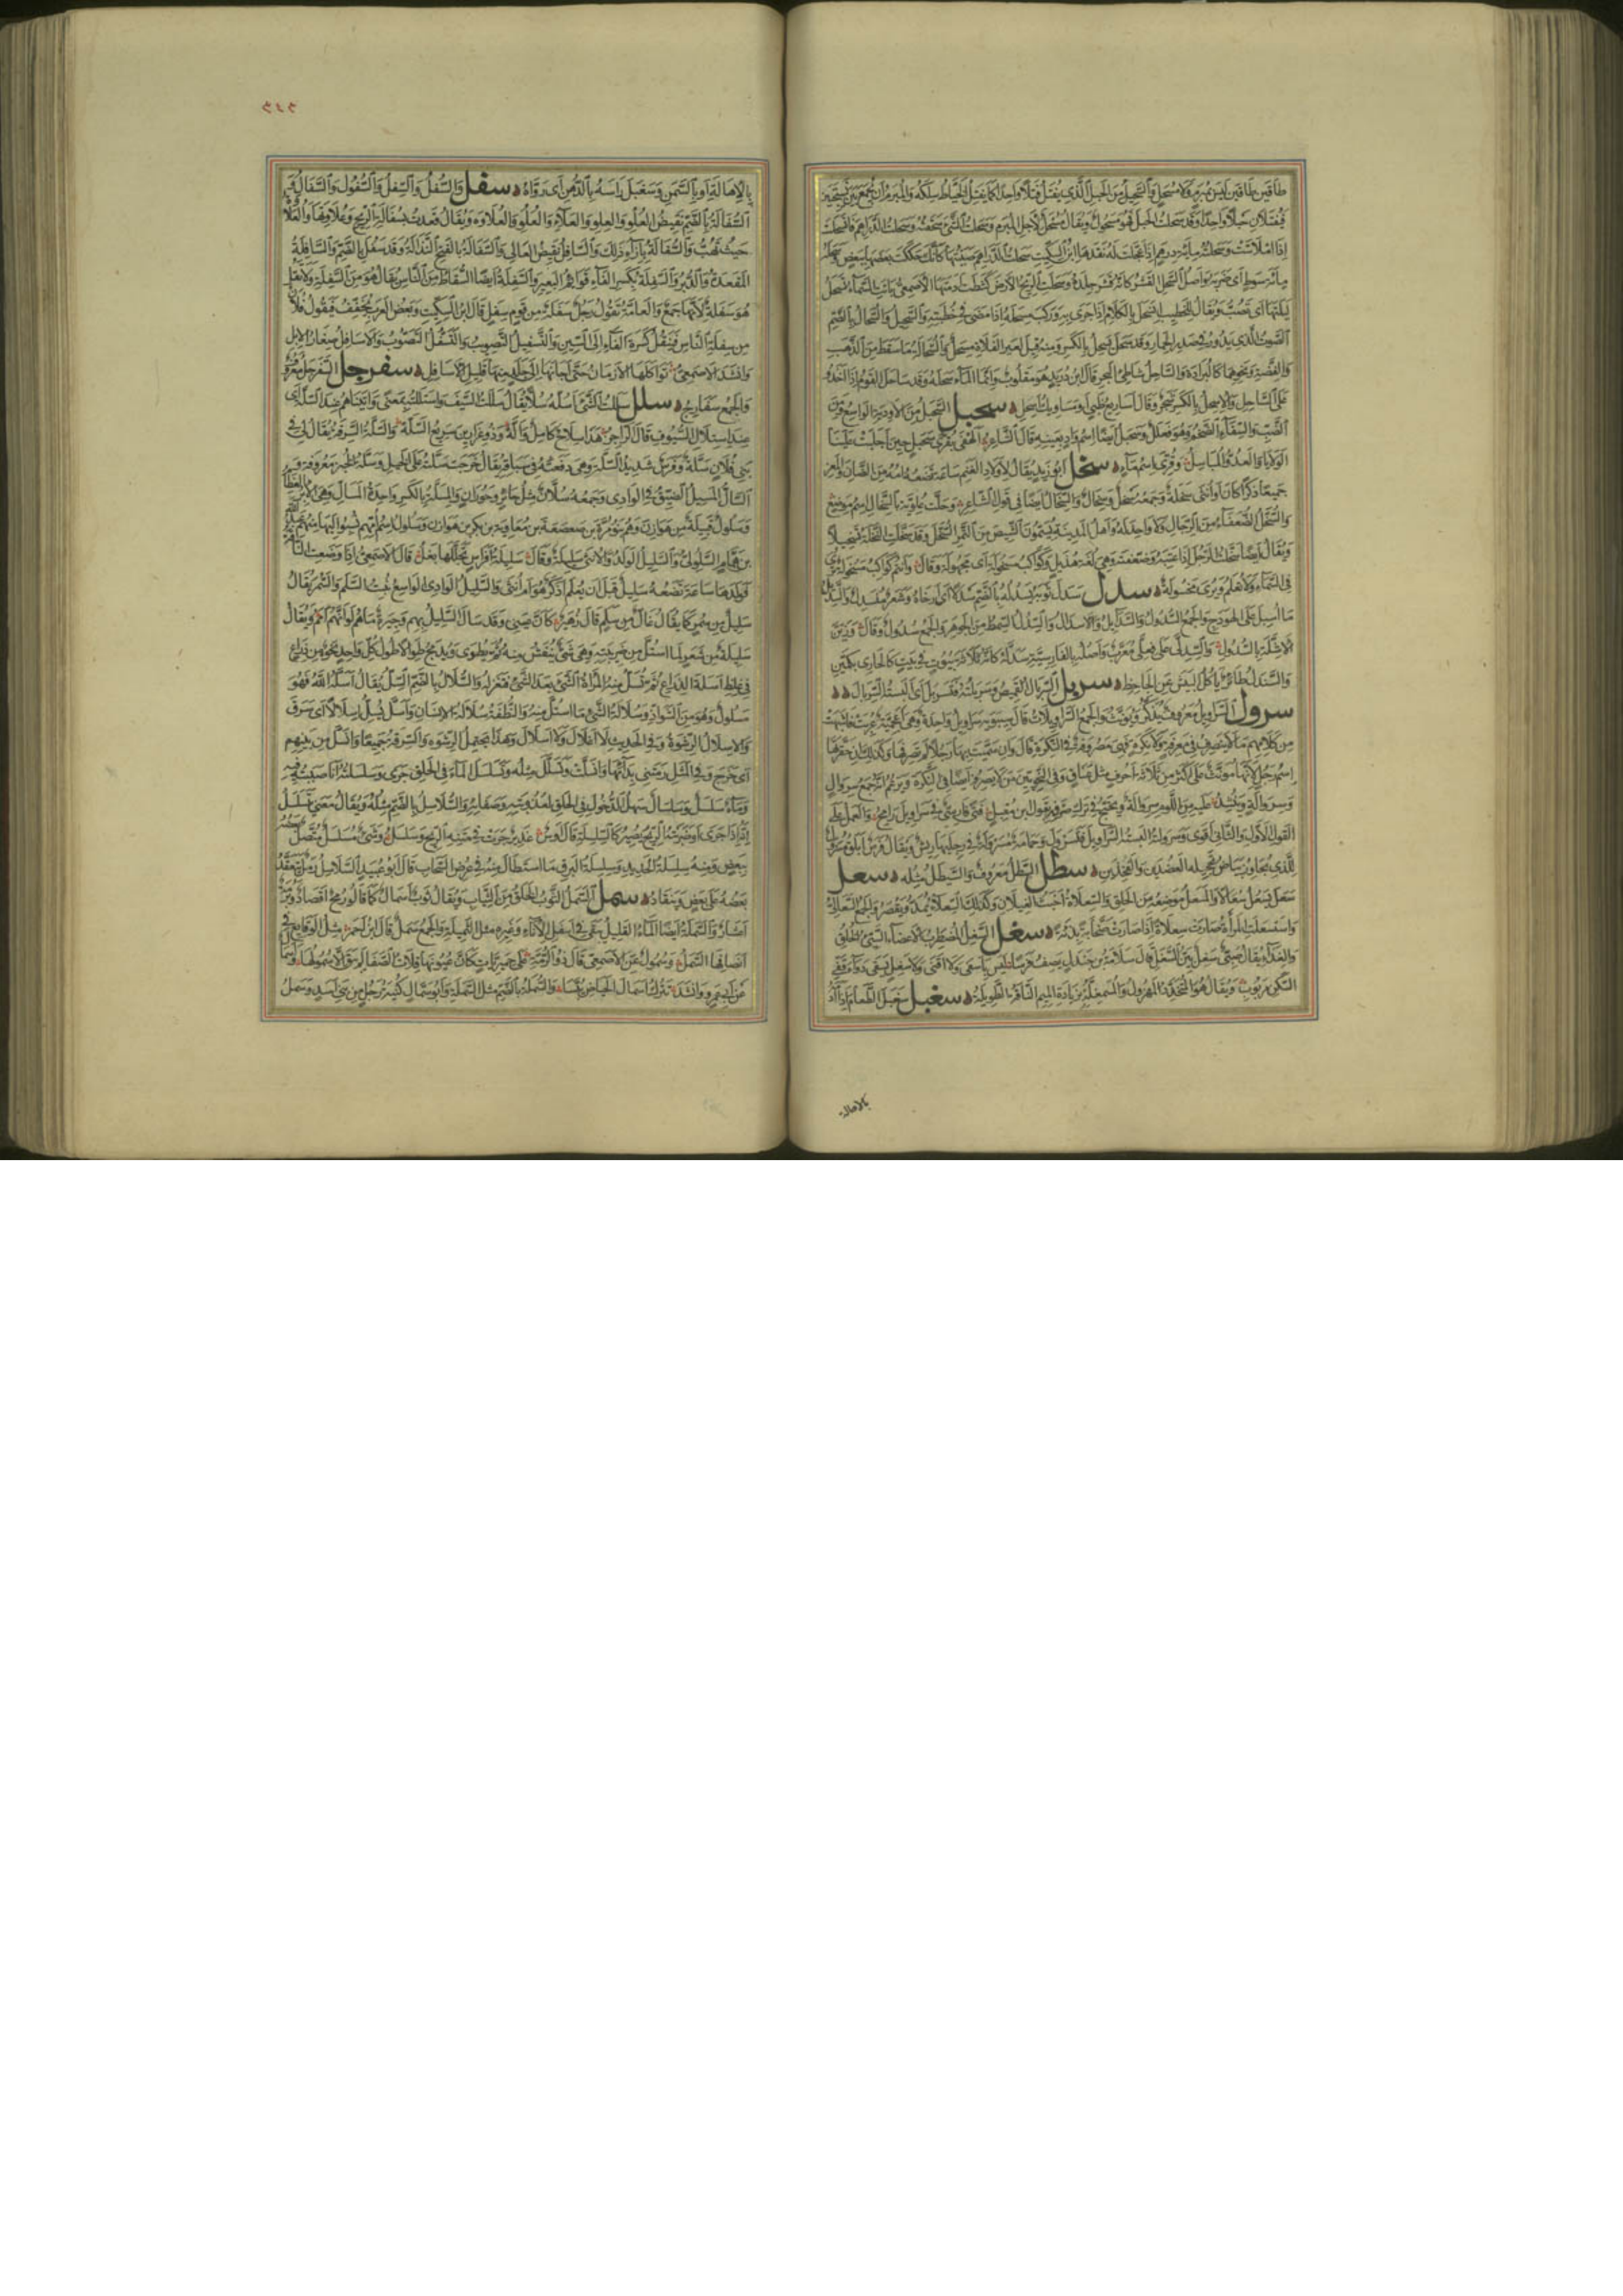 طاقين ليس بمبرم ولا مسحل والسحيل من الحبل الذي يفتل فتلا واحدا كما يفتل الخياط سلكه والمبرم ان يجمع بين نسيجتين
فيفتلان حبلا واحدا وقد سحلت الحبل فهو مسحول ويقال مسحل لاجل المبرم وسحلت الشئ سحقته وسحلت الدراهم فانسحلت
اذا املاست وسحلته مائة درهم اذا عجلت له نقدها ابن السكيت سحلت الدراهم صببتها كانك حككت بعضها ببعض وسحله
مائة سوط اى ضربه واصل السحل القشر كانه قشر جلده وسحلت الريح الارض كشطت ادمتها الاصمعى باتت السماء تسحل
ليلتها اى تصب ويقال للخطيب انسحل بالكلام اذا جرى به وركب مسحله اذا مضى فى خطبته والسحيل والسحال بالضم
الصوت الذى يدور فى صدر الحمار وقد سحل يسحل بالكسر ومنه قيل لعير الفلاة مسحل والسحالة ما سقط من الذهب
والفضة ونحوهما كالبرادة والساحل شاطئ البحر قال ابن دريد هو مقلوب وانما الماء سحله وقد ساحل القوم اذا اخذوا
على الساحل والاسحل بالكسر شجر وقال اساريع ظبى او مساويك اسحل سحبل السحبل من الاودية الواسع وكذلك
الضب والسقاء الضخم وهو فعلل وسحبل ايضا اسم واد بعينه قال الشاعر الهفى بقرى سحبل حين اجلبت علينا
الولايا والعدو المباسل وقرى اسم ماء سخل ابو زيد يقال لاولاد الغنم ساعة تضعه امه من الضان والمعز
جميعا ذكرا كان او انثى سخلة وجمعه سخل وسخال والسخال ايضا فى قول الشاعر وحلت علوية بالسخال اسم موضع
والسخل الضعفاء من الرجال ولا واحد له واهل المدينة يسمون الشيص من التمر السخل وقد سخلت النخلة تسخيلا
ويقال ايضا سخلت الرجل اذا عبته وضعفته وهى لغة هذيل وكواكب مسخولة اى مجهولة وقال وانتم كواكب مسخولة ترى
فى السماء ولا تعلم ويروى مخسولة سدل سدل ثوبه يسدله بالضم سدلا اى ارخاه وشعر منسدل والسديل
ما اسبل على الهودج والجمع السدول والسدايل والاسدال والسدل السمط من الجوهر والجمع سدول وقال
كالاشلة بالسدول والسدلى على فعلى معرب واصله بالفارسية سه دله كانه ثلاثة بيوت فى بيت كالحارى بكمين
والسندل طائر ياكل البيش عن الجاحظ سربل السربال القميص وسربلته فتسربل اى البسته السربال
سرول السراويل معروف يذكر ويؤنث والجمع السراويلات قال سيبويه سراويل واحدة وهى اعجمية عربت فاشبهت
من كلامهم ما لا ينصرف فى معرفة ولا نكرة فهى مصروفة فى النكرة قال وان سميت بها رجلا لم تصرفها وكذلك ان حقرتها
اسم رجل لانها مؤنث على اكثر من ثلاثة احرف مثل عناق وفى النحويين من لا يصرفه ايضا فى النكرة ويزعم انه جمع سروال
وسروالة وينشد عليه من اللؤم سروالة ويحتج فى ترك صرفه بقول ابن مقبل فتى فارسى فى سراويل رامح والعمل على
القول الاول والثانى اقوى وسرولته البسته السراويل فتسرول وحمامة مسرولة فى رجليها ريش ويقال فرس ابلق مسرول
للذى يجاوز بياض تحجيله العضدين والفخذين سطل السطل معروف والسيطل مثله سعل
سعل يسعل سعالا والمسعل موضعه من الحلق والسعلاة اخبث الغيلان وكذلك السعلاء تمد وتقصر والجمع السعالى
واستسعلت المرأة صارت سعلاة اذا صارت صخابة بذية سغل السغل المضطرب الاعضاء السيئ الخلق
والغذاء يقال صبى سغل بين السغل قال سلامة بن جندل يصف فرسا ليس باسفى ولا اقنى ولا سغل يسقى دواء قفى
السكن مربوب ويقال هو المتخدد المهزول والمسمغلة بزيادة الميم الناقة الطويلة سغبل سغبل الطعام اذا ادمه
بالاهالة
٣٤٣
بالاهالة او بالسمن وسغبل راسه بالدهن اى رواه سفل السفل والسفل والسفول والسفال
السفالة بالضم نقيض العلو والعلو والعلو والعلاء والعلاوة ويقال قعدت بسفالة الريح وعلاوتها والعلاوة
حيث تهب والسفالة بازاء ذلك والسافل نقيض العالى والسفالة بالفتح النذالة وقد سفل بالضم والسافلة
المقعدة والدبر والسفلة بكسر الفاء قوائم البعير والسفلة ايضا السقاط من الناس يقال هو من السفلة ولا تقل
هو سفلة لانها جمع والعامة تقول رجل سفلة من قوم سفل قال ابن السكيت وبعض العرب يخفف فيقول فلان
من سفلة الناس فينقل كسرة الفاء الى السين والتسفيل التصويب والتسفل التصوب والاسافل صغار الابل
وانشد الاصمعى تواكلها الازمان حتى اجأنها الى جلد منها قليل الاسافل سفرجل السفرجل معروف
والجمع سفارج سلل سللت الشئ اسله سلا يقال سللت السيف واستللته بمعنى واتيناهم عند السلة اى
عند استلال السيوف قال الراجز هذا سلاح كامل واله وذو غرارين سريع السله والسلة السرقة يقال لى فى
بنى فلان سلة وفرس شديد السلة وهى دفعته فى سباقه يقال خرجت سلته على الخيل وسلة الخبز معروفة
السال المسيل الضيق فى الوادى وجمعه سلان مثل حائر وحوران والمسلة بالكسر واحدة المسال وهى الابر العظام
وسلول قبيلة من هوازن وهم بنو مرة بن صعصعة بن معاوية بن بكر بن هوازن وسلول اسم امهم نسبوا اليها منهم عبد الله
بن همام السلولى والسليل الولد والانثى سليلة وقال سليلة افراس تجللها بغل قال الاصمعى اذا وضعت الناقة
فولدها ساعة تضعه سليل قبل ان يعلم اذكر هو ام انثى والسليل الوادى الواسع ينبت السلم والسمر يقال
سليل من سمر كما يقال غال من سلم قال زهير كان عينى وقد سال السليل بهم وجيرة ما هم لو انهم امم ويقال
سليلة من شعر لما استل من ضريبته وهى شئ ينفش منه ثم يطوى ويدمج طوالا طول كل واحدة نحو من ذراع
فى غلظ اسلة الذراع ثم تسل منه المرأة الشئ بعد الشئ فتغزله والسلال بالضم السل يقال اسله الله فهو
مسلول وهو من الشواذ وسلالة الشئ ما استل منه والنطفة سلالة الانسان واسل يسل اسلالا اى سرق
والاسلال الرشوة وفى الحديث لا اغلال ولا اسلال وهذا يحتمل الرشوة والسرقة جميعا وانسل من بينهم
اى خرج وفى المثل رمتنى بدائها وانسلت وتسلل مثله وتسلسل الماء فى الحلق جرى وسلسلته انا صببته فيه
وماء سلسل وسلسال سهل الدخول فى الحلق لعذوبته وصفائه والسلاسل بالضم مثله ويقال معنى يتسلسل
انه اذا جرى او ضربته الريح يصير كالسلسلة قال اوس غدير جرت فى متنه الريح سلسل وشئ مسلسل متصل بعضه
ببعض ومنه سلسلة الحديد وسلسلة البرق ما استطال منه فى عرض السحاب قال ابو عبيد السلاسل رمل يتعقد
بعضه على بعض وينقاد سمل السمل الثوب الخلق من الثياب ويقال ثوب اسمال كما قالوا رمح اقصاد وبرمة
اعشار والسملة ايضا الماء القليل يبقى فى اسفل الاناء وغيره مثل الثميلة والجمع سمل قال ابن احمر مثل الوقايع فى
انصافها السمل وسمول عن الاصمعى قال ذو الرمة على حميريات كان عيونها قلات الصفا لم يبق الا سمولها
عن ابى عمرو وانشد تترك اسمال الحياض يبسا والسملة بالضم مثل السملة وابو سمال كنية رجل من بنى اسد وسمل